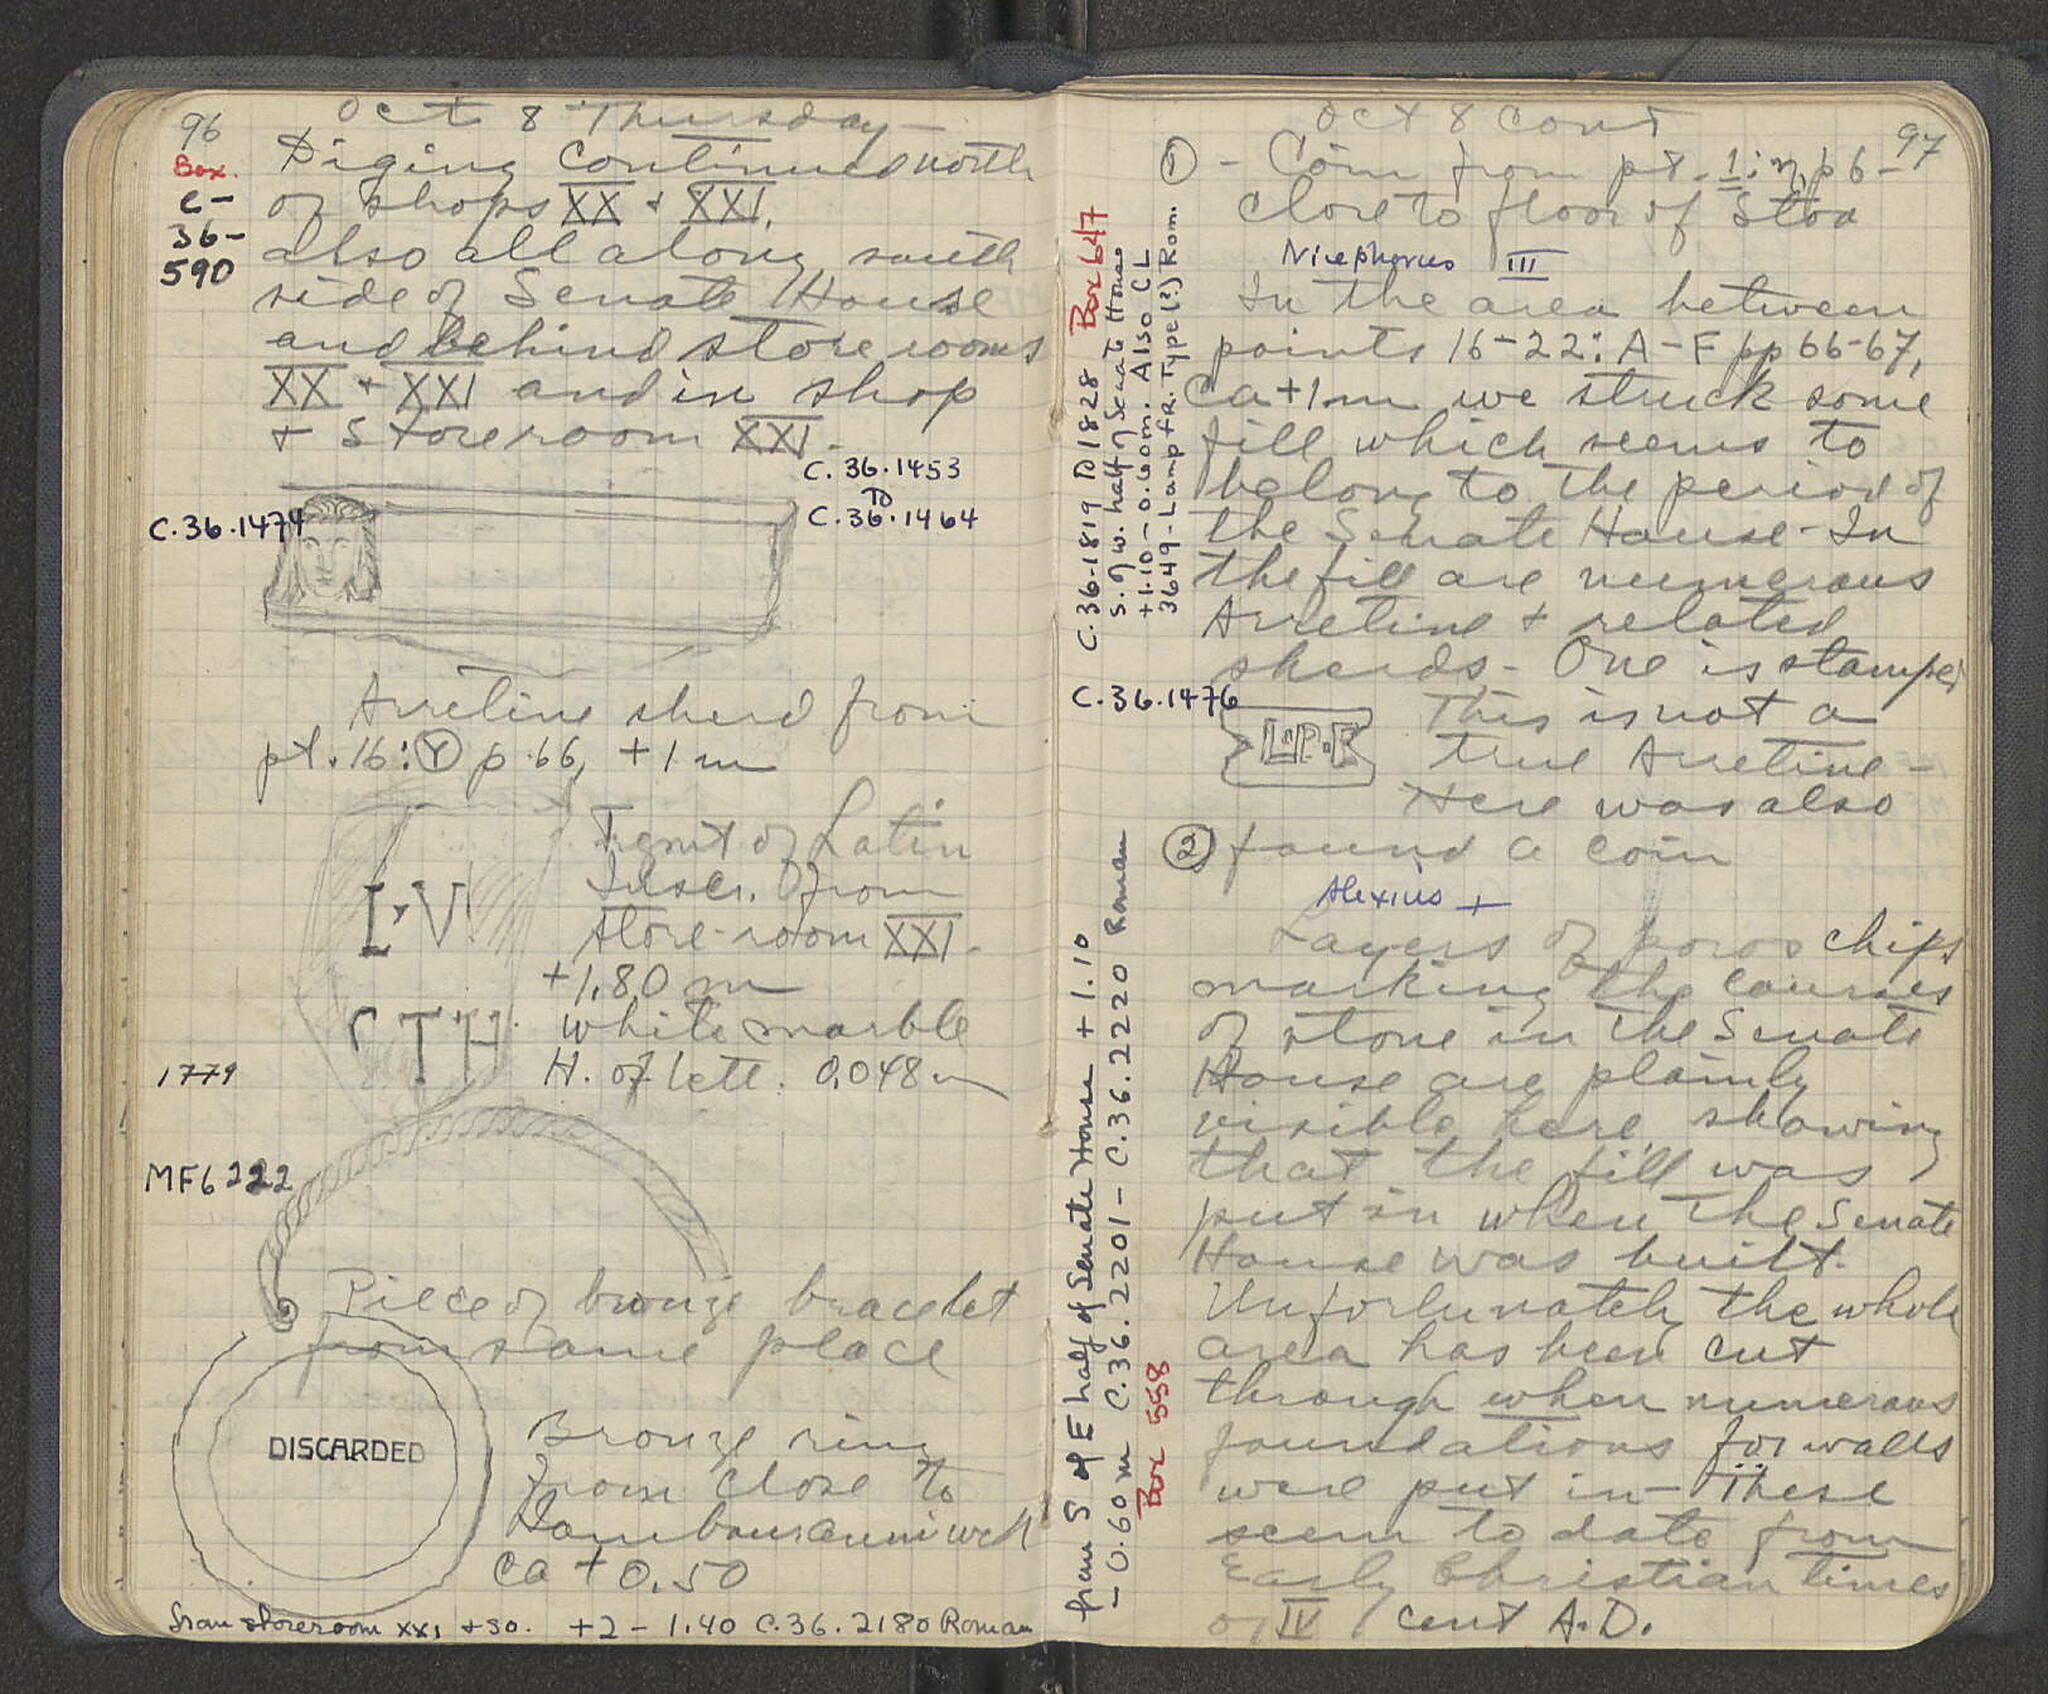 96
Oct 8 Thursday
Box.
C-
36-
590
Diging continued north
of shops XX + XXI.
also all along south
side of Senate House
and behind store rooms
XX + XXI and in shop
+ Storeroom XXI.
C. 36.1453
TO
C. 36.1464
C.36.1474
Arretine sherd from
pt. 16:Y p.66, +1m
L·V
CTH
Fgmt of Latin
Inscr. from
store-room XXI.
+1.80 m
white marble
H. of lett. 0.048m
1779
MF6222
Piece of bronze bracelet
from same place
DISCARDED
Bronze ring
from close to
ca + 0.50
from storeroom XXI +SO. +2 - 1.40 C.36.2180 Roman
Oct 8 Cont
97
① - Coin from pt. 1:η, p 6-
close to floor of Stoa
Nicephorus III
In the area between
points 16-22: A-F pp 66-67,
Ca +1m we struck some
fill which seems to
belong to the period of
the Senate House - In
the fill are numerous
Arretine + related
sherds - One is stamped
C.36.1476
L·P·F
This is not a
true Arretine -
Here was also
② found a coin
Alexius +
Layers of poros chips
marking the courses
of stone in the Senate
House are plainly
visible here, showing
that the fill was
put in when the Senate
House was built.
Unfortunately the whole
area has been cut
through when numerous
foundations for walls
were put in - These
seem to date from
Early Christian times
or IV cent A.D.
C.36-1819 TO 1828 Box 647
S. of W. half of Senate House
+1.10 - 0.60m. Also CL
3649 - Lamp fr. Type (?) Rom.
from S of E half of Senate House +1.10
- 0.60 m C.36.2201 - C.36.2220 Roman
Box 558